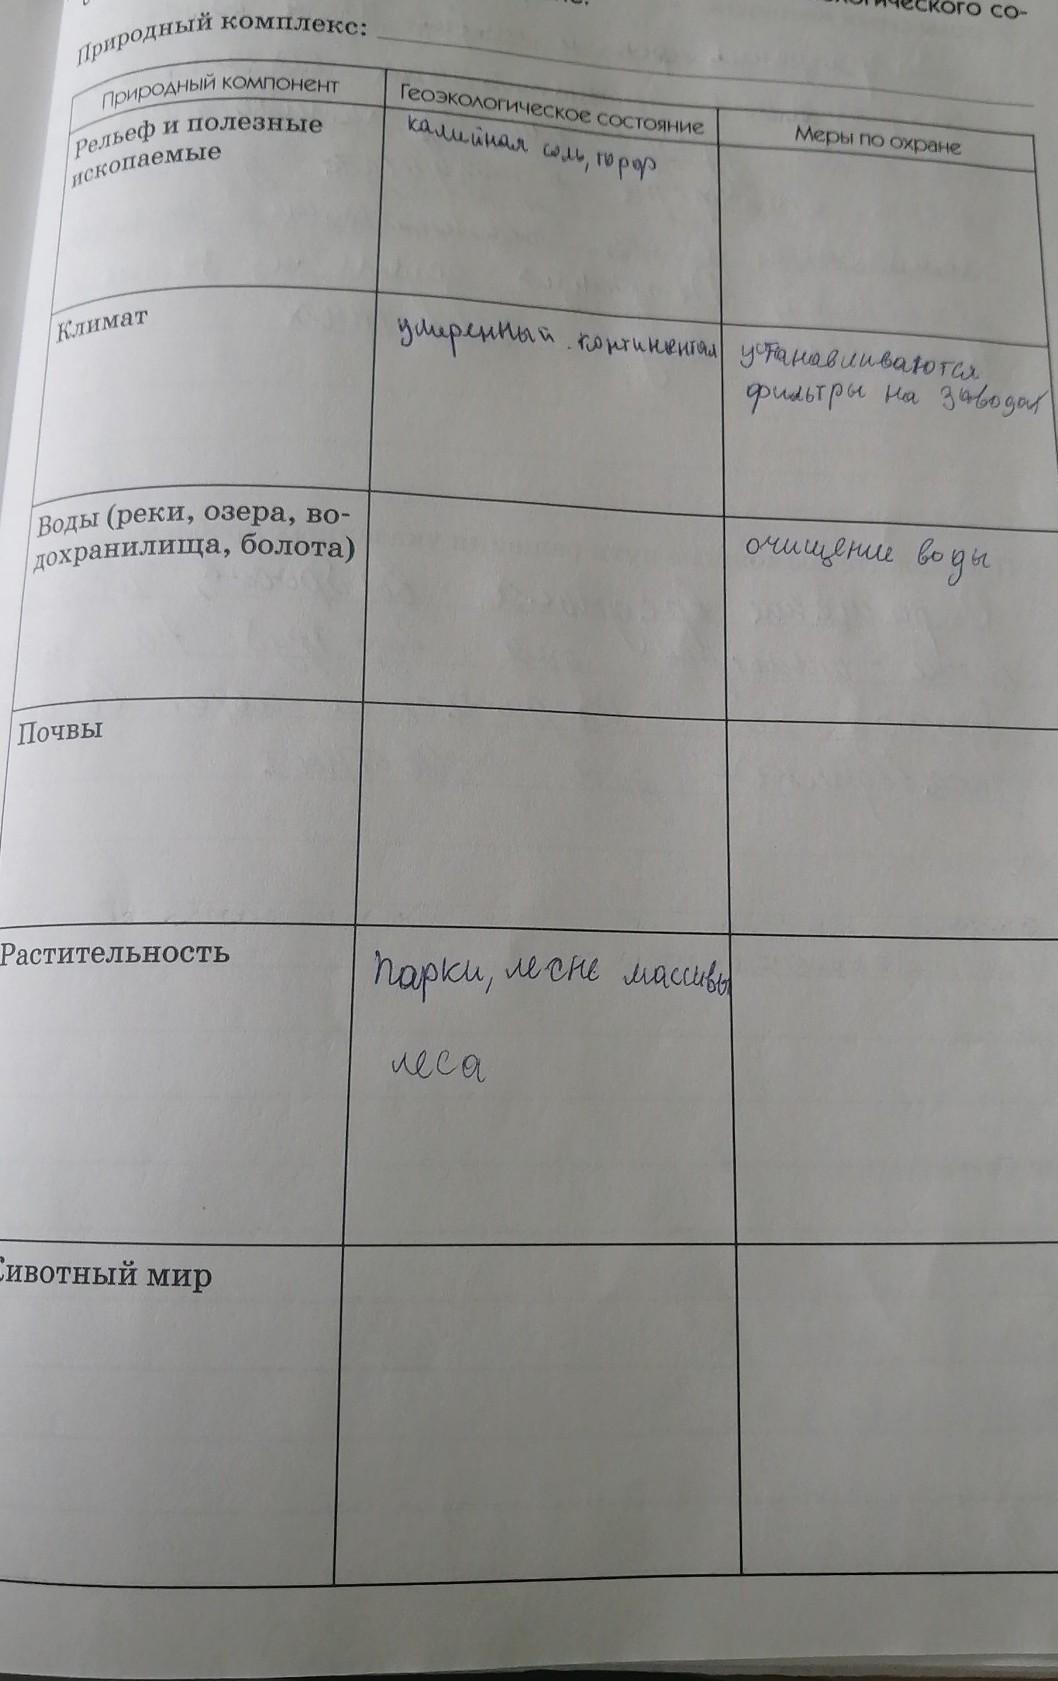 ческого со-
Природный комплекс:
Природный компонент
Геоэкологическое состояние
Меры по охране
Рельеф и полезные
ископаемые
калийная соль, торф
Климат
умеренный континентал
устанавливаются
фильтры на заводах
Воды (реки, озера, во-
дохранилища, болота)
очищение воды
Почвы
Растительность
Парки, лесне массивы
леса
ивотный мир